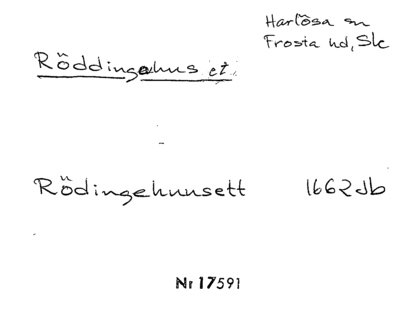 Harlösa sn
Frosta hd, Sk
Röddingehus et.
Rödingehuusett 1662 Jb
Nr 17591